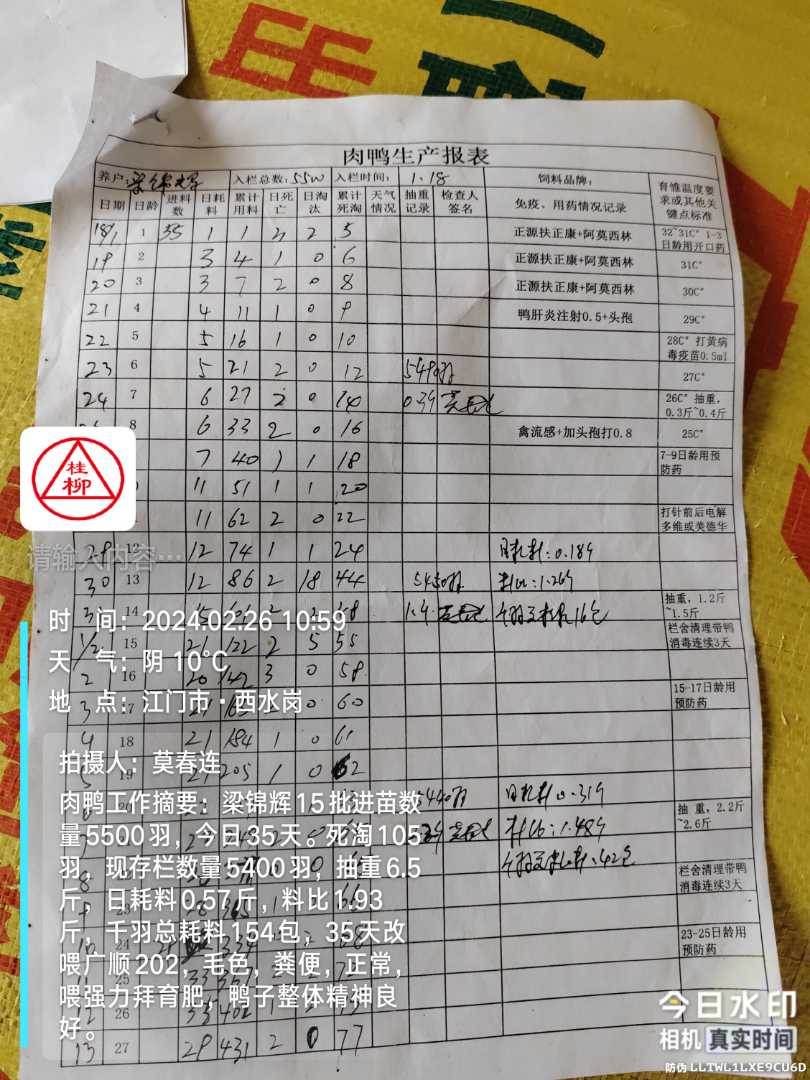 肉鸭生产报表
养户: 梁锦辉 入栏总数: 5500 入栏时间: 1.18 饲料品牌: 育雏温度要求或其他关键点标准
日期 日龄 进料数 日耗料 累计用料 日死亡 日淘汰 累计死淘 天气情况 抽重记录 检查人签名 免疫、用药情况记录
18/1 1 35 1 1 3 2 5 正源扶正康+阿莫西林 32~31C° 1-3日龄用开口药
19 2 3 4 1 0 6 正源扶正康+阿莫西林 31C°
20 3 3 7 2 0 8 正源扶正康+阿莫西林 30C°
21 4 4 11 1 0 9 鸭肝炎注射0.5+头孢 29C°
22 5 5 16 1 0 10 28C° 打黄病毒疫苗0.5ml
23 6 5 21 2 0 12 5490羽 27C°
24 7 6 27 2 0 14 0.39 26C° 抽重,0.3斤~0.4斤
8 6 33 2 0 16 禽流感+加头孢打0.8 25C°
7 40 1 1 18 7-9日龄用预防药
11 51 1 1 20
11 62 2 0 22 打针前后电解多维或美德华
29 12 12 74 1 1 24 日耗料:0.189
30 13 12 86 2 18 44 5450羽 料比:1.269
3 14 1.4 千羽总耗料16包 抽重,1.2斤~1.5斤
1/2 15 21 122 2 5 55 栏舍清理带鸭消毒连续3天
2 16 20 142 3 0 58
3 17 0 60 15-17日龄用预防药
4 18 21 184 1 0 61
5 19 21 205 1 0 62
5440羽 日耗料0.319
料比:1.489 抽重,2.2斤~2.6斤
8 千羽总耗料:42包 栏舍清理带鸭消毒连续3天
9 23 66
10 24 334 23-25日龄用预防药
25
12 26 35 402
13 27 29 431 2 0 77
桂柳
请输入内容…
时 间:2024.02.26 10:59
天 气:阴 10℃
地 点:江门市·西水岗
拍摄人:莫春连
肉鸭工作摘要:梁锦辉15批进苗数
量5500羽,今日35天。死淘105
羽,现存栏数量5400羽,抽重6.5
斤,日耗料0.57斤,料比1.93
斤,千羽总耗料154包,35天改
喂广顺202,毛色,粪便,正常,
喂强力拜育肥,鸭子整体精神良
好。
今日水印
相机 真实时间
防伪 LLTWL1LXE9CU6D